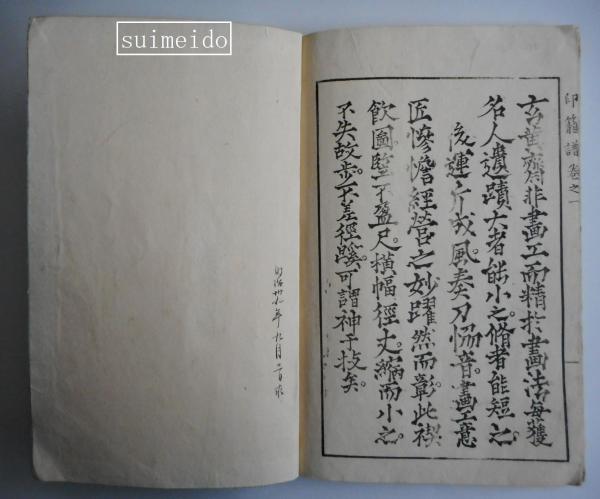 suimeido
印籠譜 卷之一
玄黄齋非畫工而精於畫法每獲
名人遺蹟大者能小之脩者能短之
後運斤成風奏刀協音畫工意
匠慘憺經營之妙躍然而彰此禊
飲圖竪不盈尺橫幅徑丈縮而小之
不失故步不差徑蹊可謂神于技矣
明治廿九年九月二日求